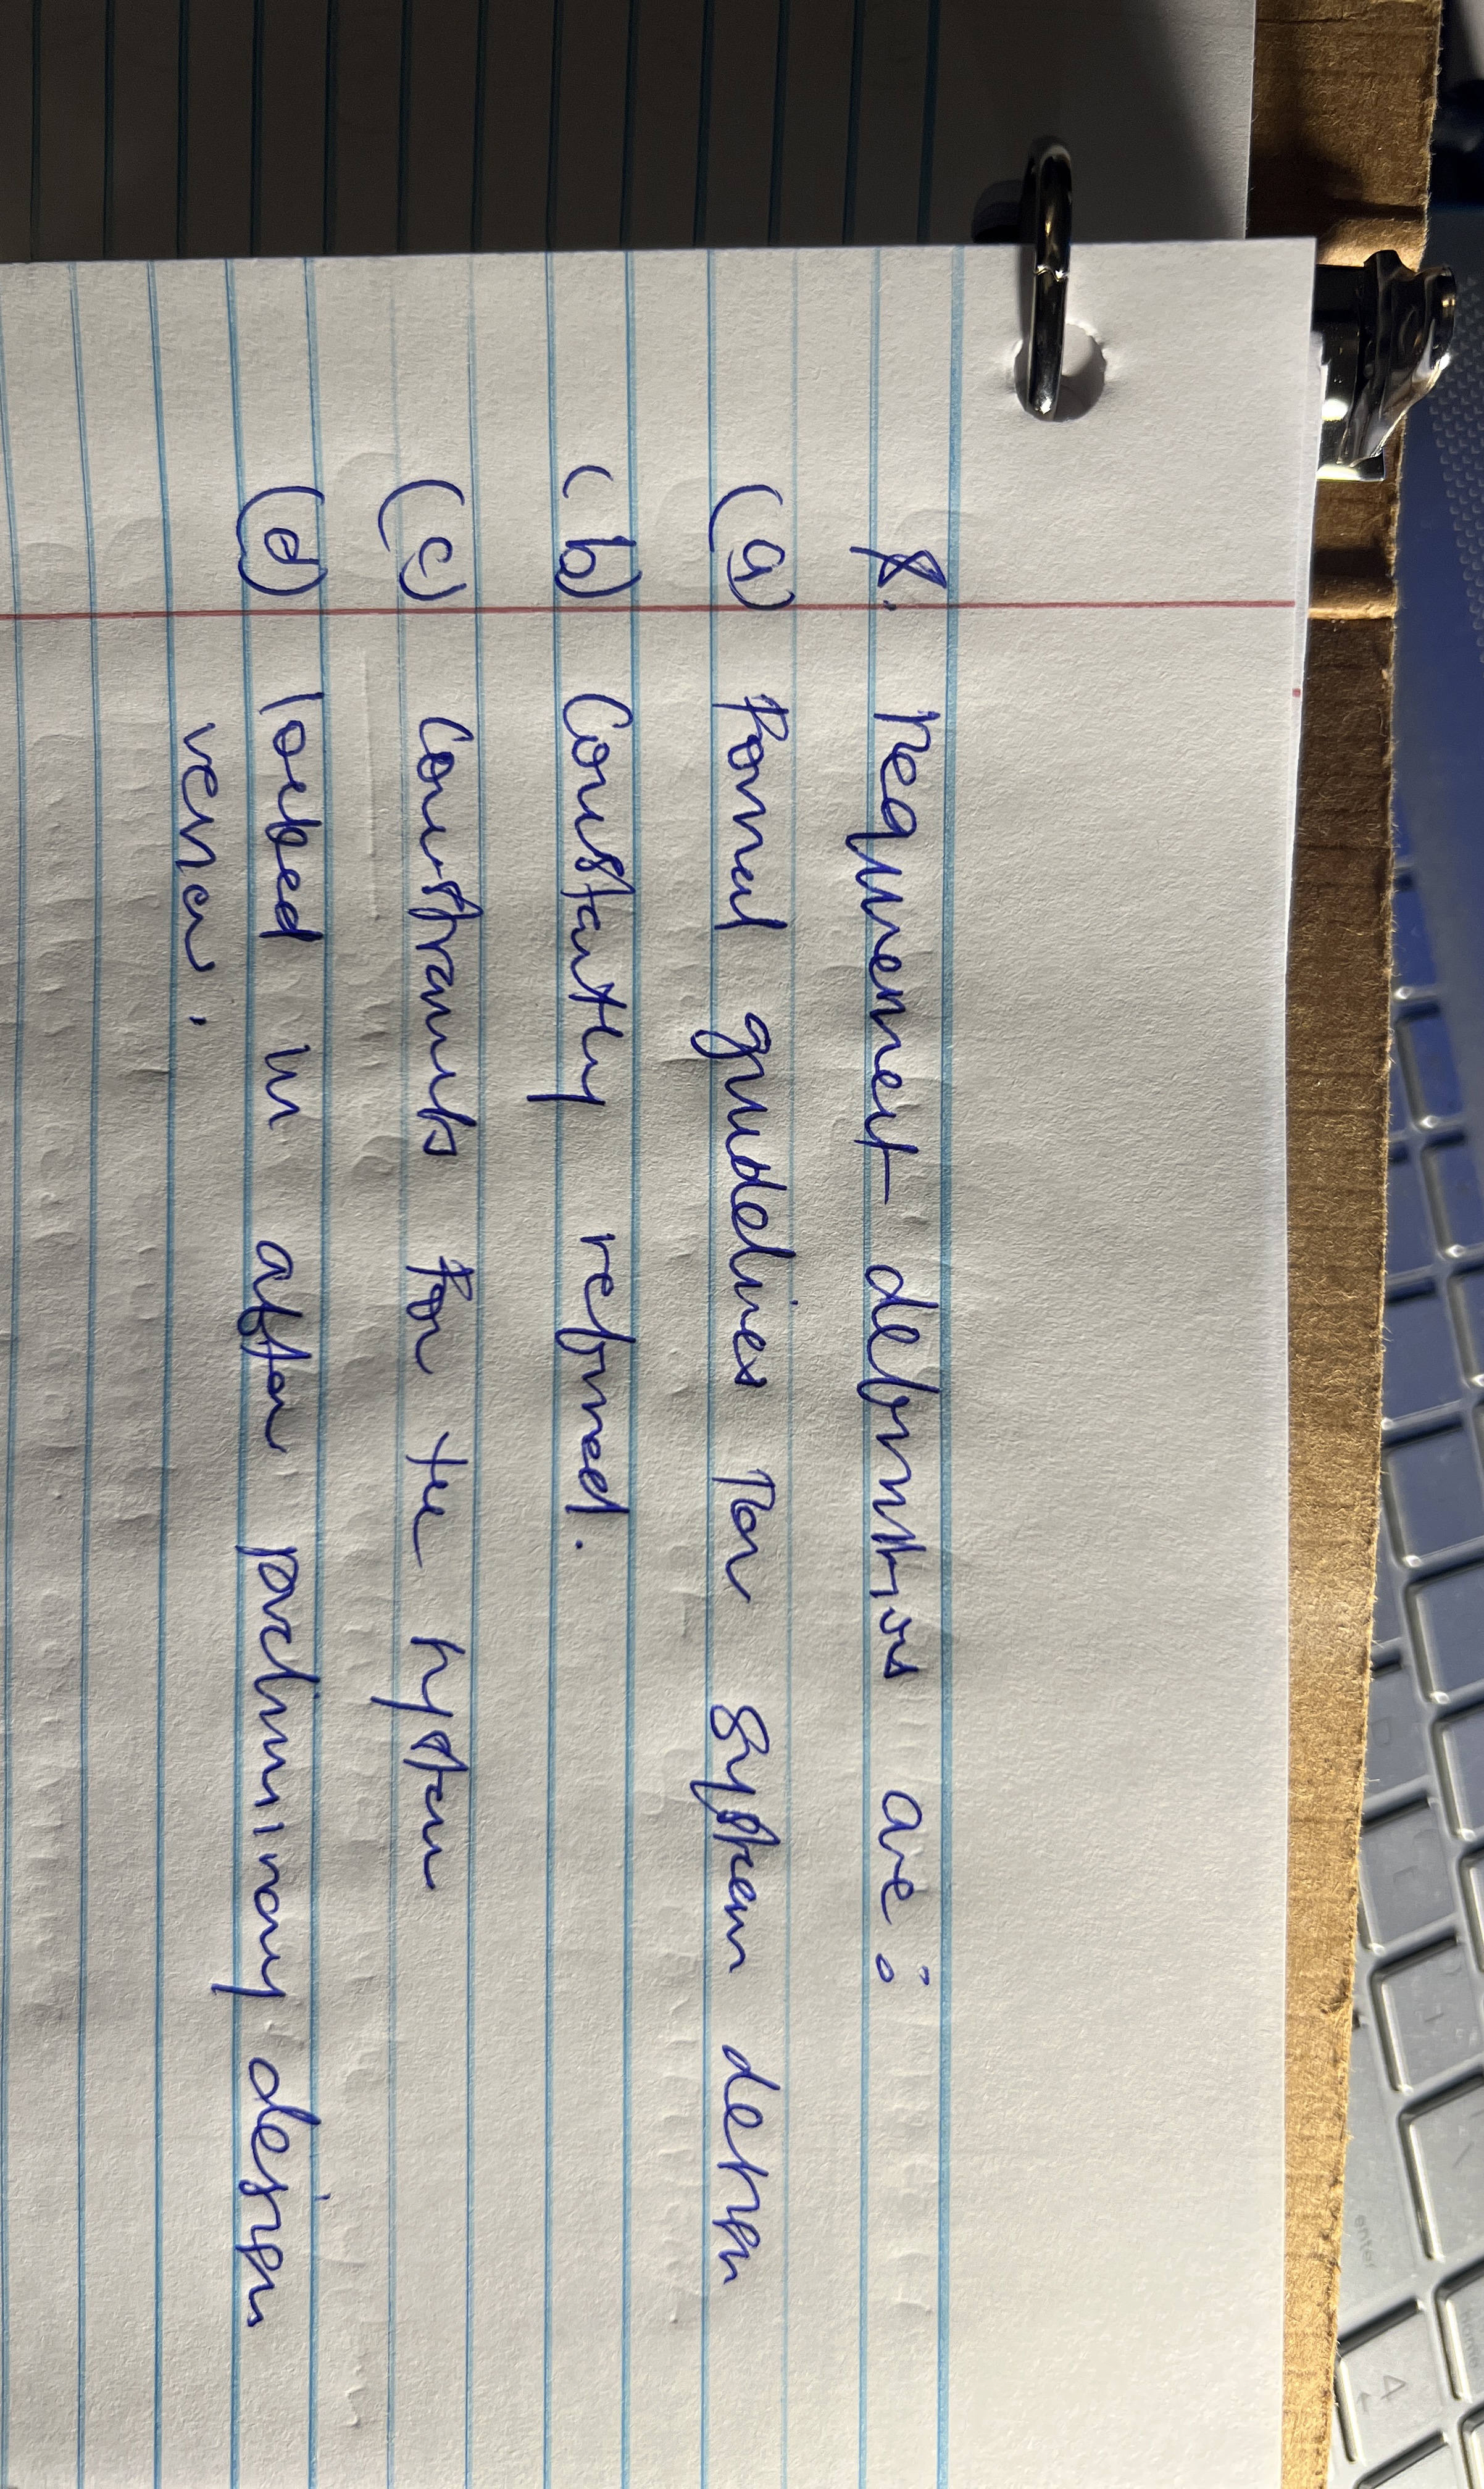 8. requirement definitions are:
(a) Formal guidelines for system design
(b) Constantly refined.
(c) Constraints for the system
(d) locked in after preliminary design
enter
4